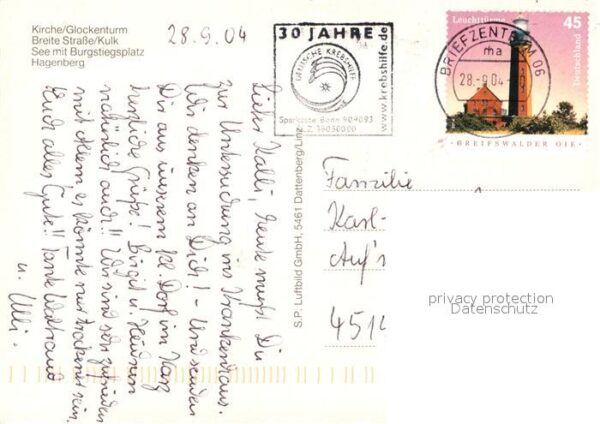 Kirche/Glockenturm
Breite Straße/Kulk
See mit Burgstiegsplatz
Hagenberg
28.9.04
30 JAHRE
DEUTSCHE KREBSHILFE
Sparkasse Bonn 909093
BLZ 38050000
www.krebshilfe.de
BRIEFZENTRUM 06
ma
28.-9.04
Leuchttürme
45
Deutschland
GREIFSWALDER OIE
Lieber Kalli, heute mußt Du
zur Untersuchung ins Krankenhaus.
Wir denken an Dich! - Und senden
Dir aus unserem kl. Dorf im Harz
herzliche Grüße! Birgit u.
natürlich auch!! Wir sind sehr zufrieden
mit allem es könnte nur trockener sein.
Euch alles Gute!! Tante Waltraud
u. Ulli.
S.P. Luftbild GmbH, 5461 Dattenberg/Linz
Familie
Karl-
Auf's
4514
privacy protection
Datenschutz